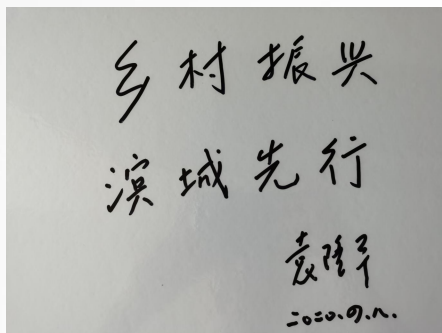 乡村振兴
滨城先行
袁隆平
二〇二〇.九.八.